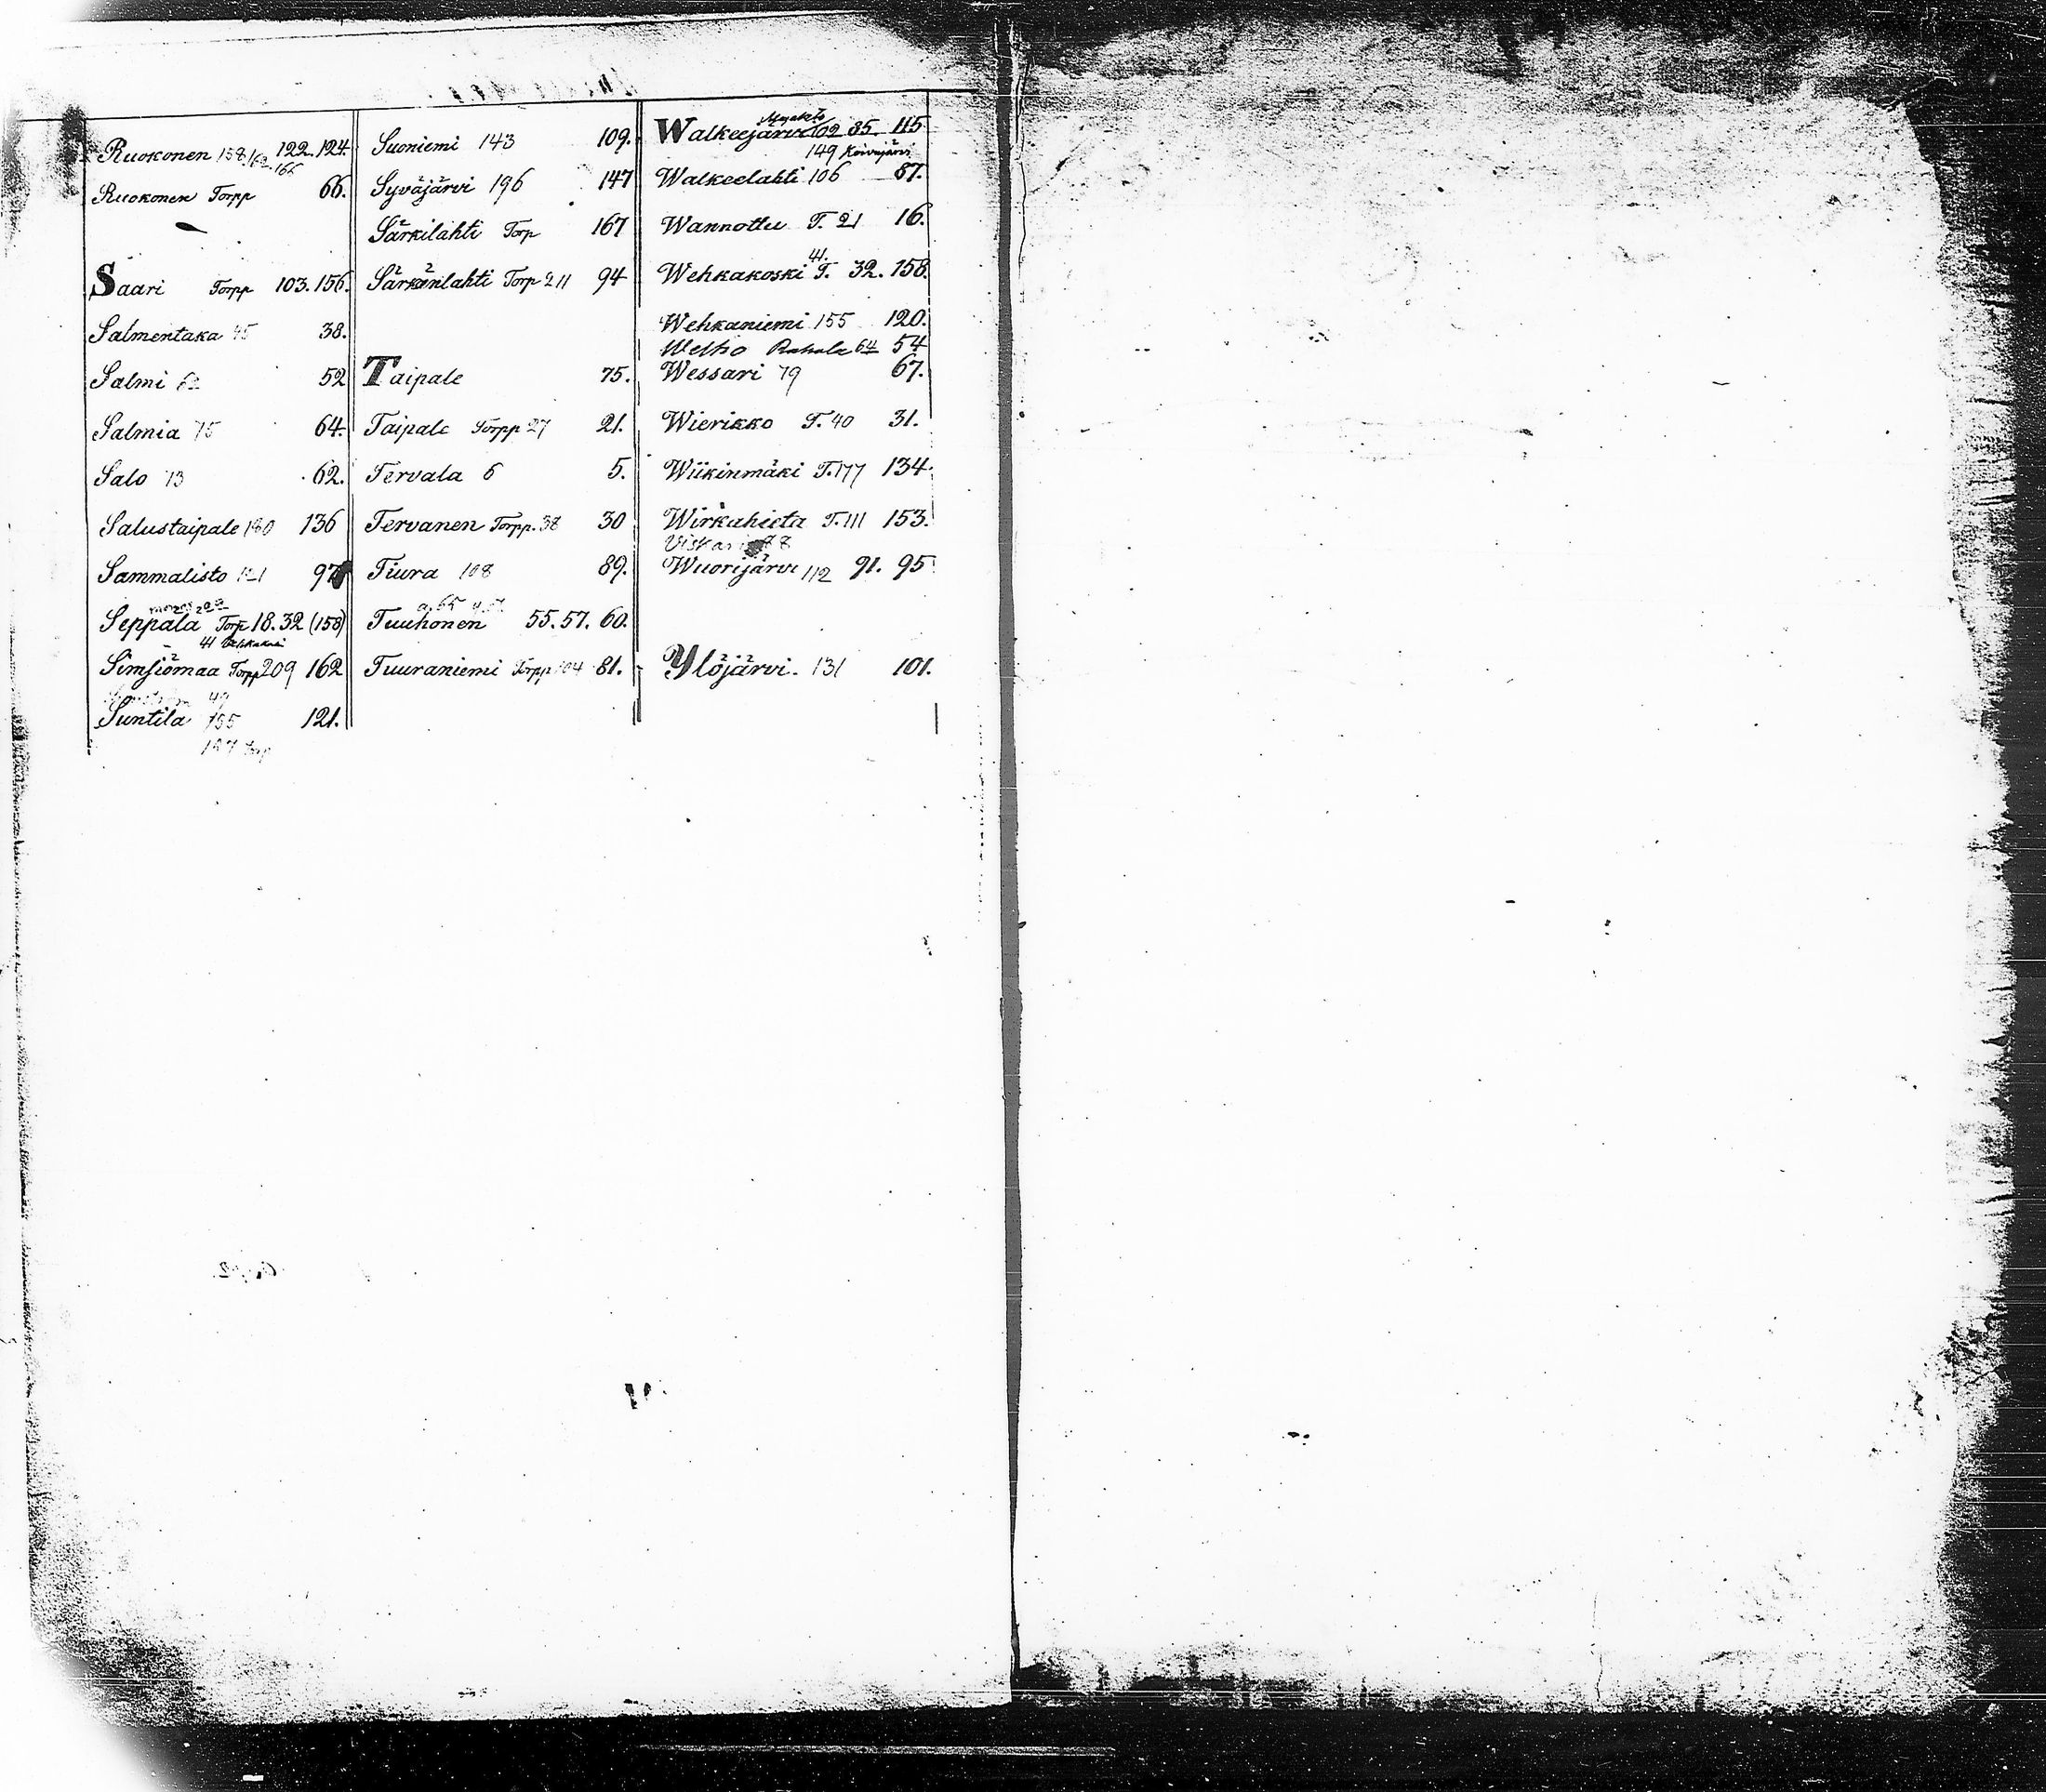 Ruokonen 158. 162. 122. 124.
166
Ruokonen Torpp 66.
Saari Torpp 103. 156.
Salmentaka 45 38.
Salmi 62 52
Salmia 75 64.
Salo 73 62.
Salustaipale 180 136
Sammalisto 121 97
Seppälä Torp 18. 32 (158)
41 Vehkakoski
Simsiömaa Torpp 209 162
49
Suntila 155 121.
157 Torp
Suoniemi 143 109.
Syväjärvi 196 147
Särkilahti Torp 167
Särkänlahti Torp 211 94
Taipale 75.
Taipale Torpp 27 21.
Tervala 6 5.
Tervanen Torpp. 38 30
Tiura 108 89.
Tuuhonen 55. 57. 60.
Tuuraniemi Torpp 104 81.
Walkeejärvi 102 85 115
149 Koivujärvi
Walkeelahti 106 87.
Wannottu T. 21 16.
41.
Wehkakoski T. 32. 158.
Wehkaniemi 155 120.
Welho Rahala 64 54
Wessari 79 67.
Wierikko T. 40 31.
Wiikinmäki T. 177 134
Wirkahieta T. 111 153.
Viskari
Wuorijärvi 112 91. 95
Ylöjärvi. 131 101.